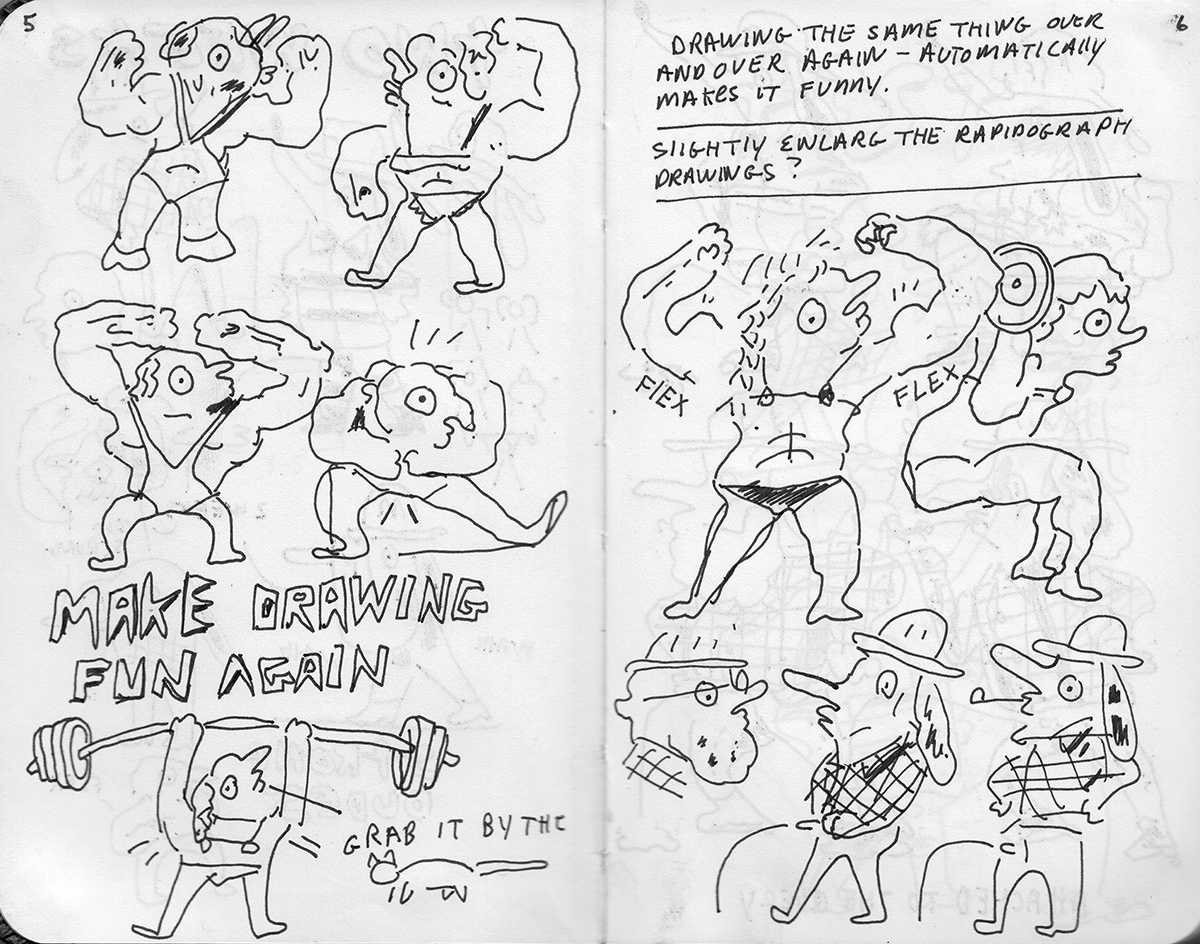 5
MAKE DRAWING
FUN AGAIN
GRAB IT BY THE
6
DRAWING THE SAME THING OVER
AND OVER AGAIN - AUTOMATICALLY
MAKES IT FUNNY.
SLIGHTLY ENLARG THE RAPIDOGRAPH
DRAWINGS?
FLEX
FLEX